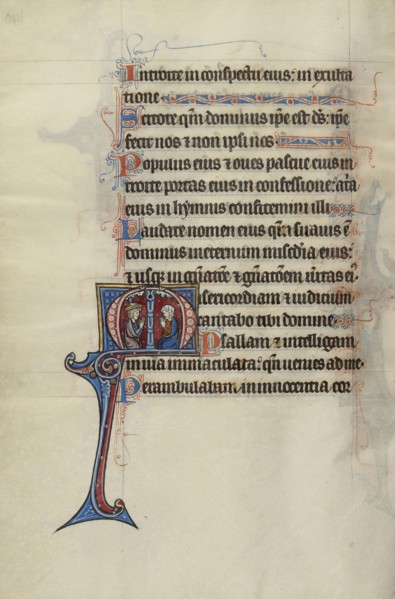 Introite in conspectu eius: in exulta
tione
Scitote qm̄ dominus ip̄e est ds̄: ip̄e
fecit nos ⁊ non ipsi nos
Populus eius ⁊ oues pascue eius in
troite portas eius in confessione: atria
eius in hymnis confitemini illi
Laudate nomen eius qm̄ suauis ē
dominus in eternum mis̄dia eius:
⁊ usq; in gn̄atōe ⁊ gn̄atōem ueritas ei'
Misericordiam ⁊ iudicium
cantabo tibi domine
Psallam ⁊ intelligam
in uia immaculata: qn̄ uenies ad me
Perambulabam in innocentia cor